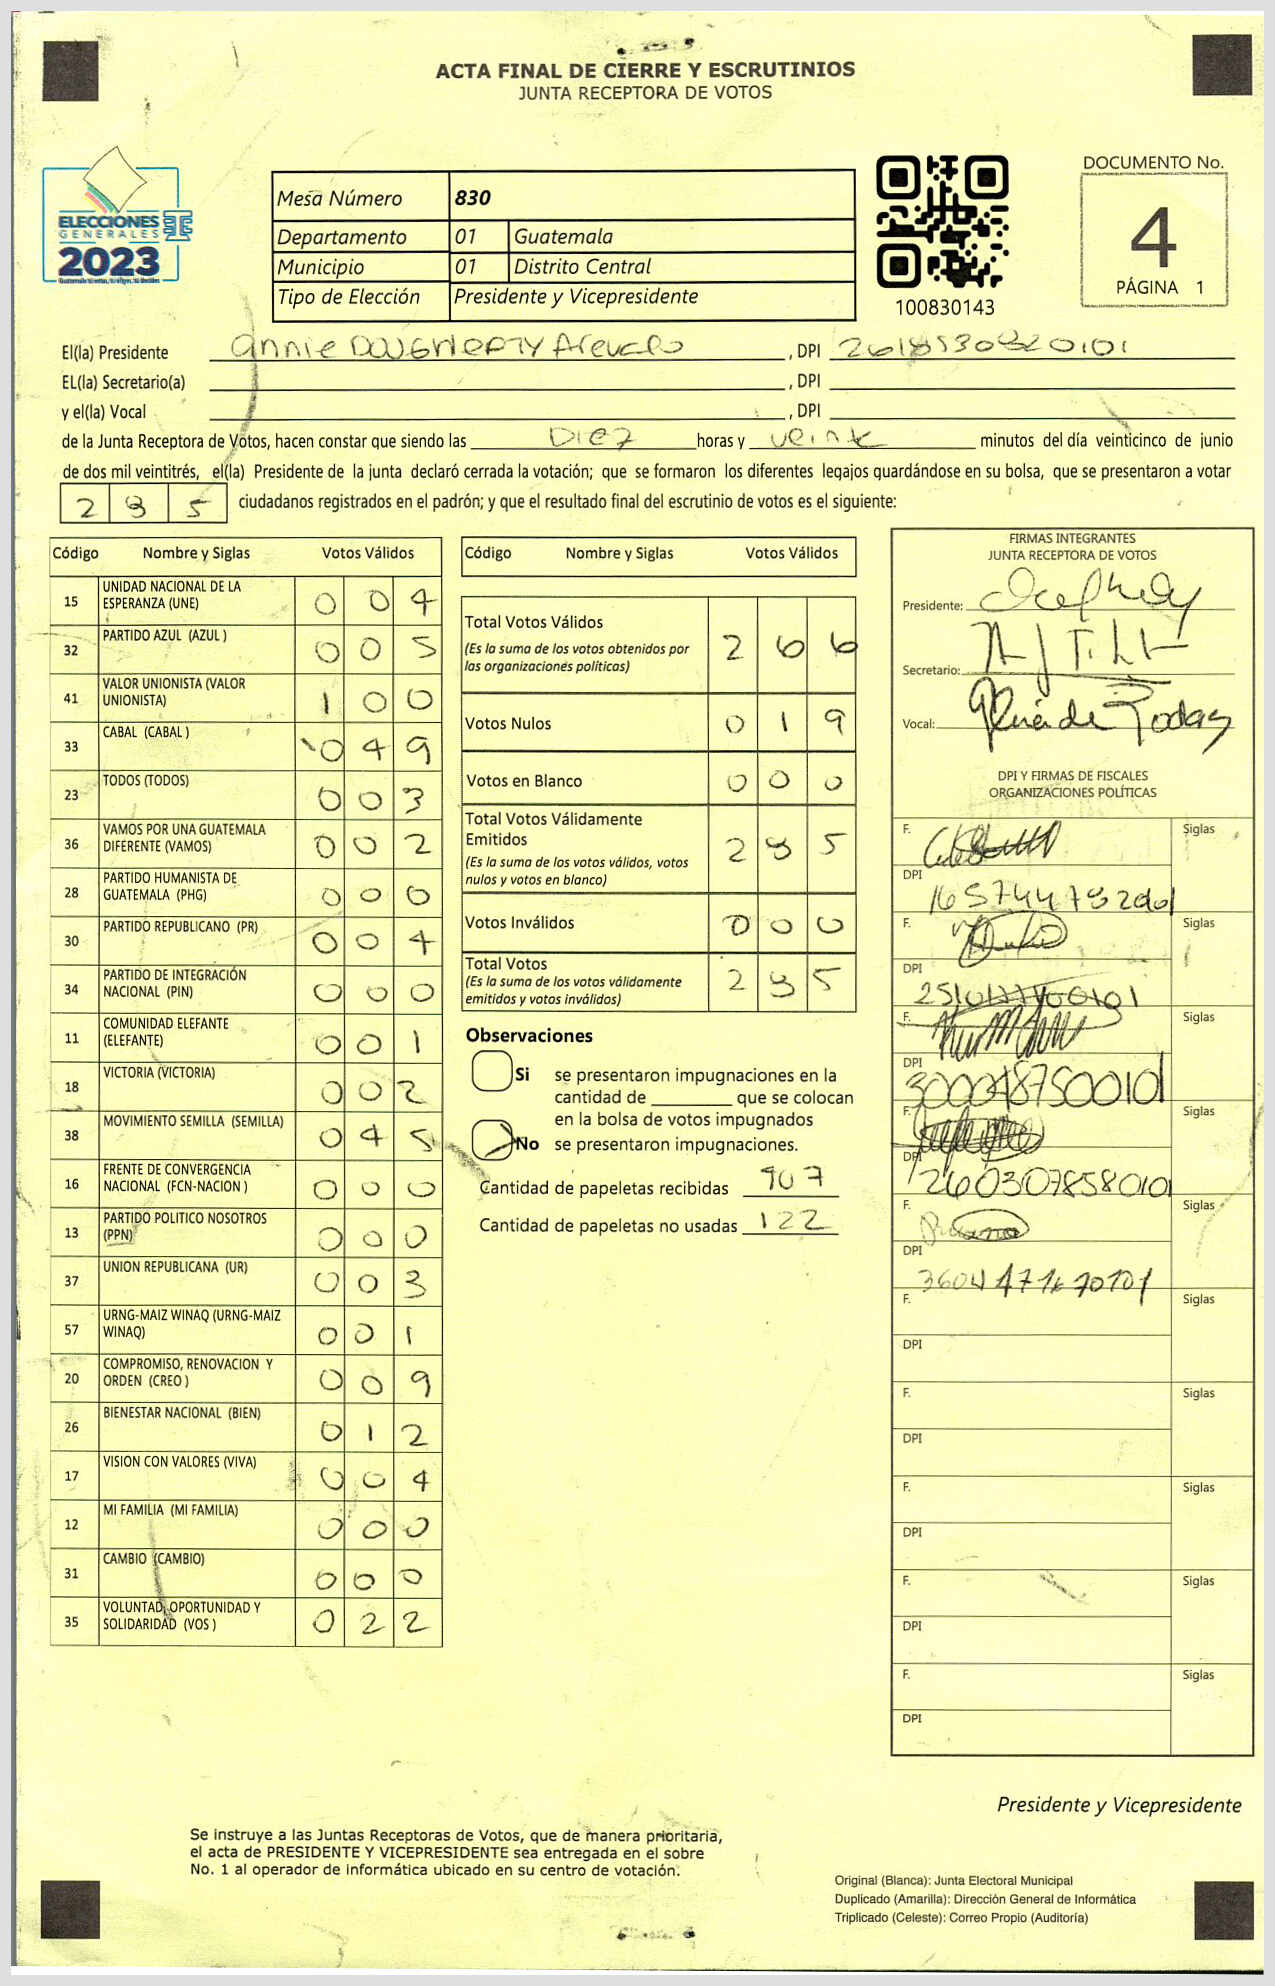 ACTA FINAL DE CIERRE Y ESCRUTINIOS
JUNTA RECEPTORA DE VOTOS
ELECCIONES
GENERALES
2023
Mesa Número 830
Departamento 01 Guatemala
Municipio 01 Distrito Central
Tipo de Elección Presidente y Vicepresidente
100830143
DOCUMENTO No.
4
PÁGINA 1
El(la) Presidente Annie DOUGHERTY Arevalo , DPI 2618530820101
EL(la) Secretario(a) , DPI
y el(la) Vocal , DPI
de la Junta Receptora de Votos, hacen constar que siendo las Diez horas y veinte minutos del día veinticinco de junio
de dos mil veintitrés, el(la) Presidente de la junta declaró cerrada la votación; que se formaron los diferentes legajos guardándose en su bolsa, que se presentaron a votar
285 ciudadanos registrados en el padrón; y que el resultado final del escrutinio de votos es el siguiente:
Código Nombre y Siglas Votos Válidos
15 UNIDAD NACIONAL DE LA ESPERANZA (UNE) 0 0 4
32 PARTIDO AZUL (AZUL ) 0 0 5
41 VALOR UNIONISTA (VALOR UNIONISTA) 1 0 0
33 CABAL (CABAL ) 0 4 9
23 TODOS (TODOS) 0 0 3
36 VAMOS POR UNA GUATEMALA DIFERENTE (VAMOS) 0 0 2
28 PARTIDO HUMANISTA DE GUATEMALA (PHG) 0 0 0
30 PARTIDO REPUBLICANO (PR) 0 0 4
34 PARTIDO DE INTEGRACIÓN NACIONAL (PIN) 0 0 0
11 COMUNIDAD ELEFANTE (ELEFANTE) 0 0 1
18 VICTORIA (VICTORIA) 0 0 2
38 MOVIMIENTO SEMILLA (SEMILLA) 0 4 5
16 FRENTE DE CONVERGENCIA NACIONAL (FCN-NACION ) 0 0 0
13 PARTIDO POLITICO NOSOTROS (PPN) 0 0 0
37 UNION REPUBLICANA (UR) 0 0 3
57 URNG-MAIZ WINAQ (URNG-MAIZ WINAQ) 0 0 1
20 COMPROMISO, RENOVACION Y ORDEN (CREO ) 0 0 9
26 BIENESTAR NACIONAL (BIEN) 0 1 2
17 VISION CON VALORES (VIVA) 0 0 4
12 MI FAMILIA (MI FAMILIA) 0 0 0
31 CAMBIO (CAMBIO) 0 0 0
35 VOLUNTAD, OPORTUNIDAD Y SOLIDARIDAD (VOS ) 0 2 2
Código Nombre y Siglas Votos Válidos
Total Votos Válidos 2 6 6
(Es la suma de los votos obtenidos por
las organizaciones políticas)
Votos Nulos 0 1 9
Votos en Blanco 0 0 0
Total Votos Válidamente
Emitidos 2 8 5
(Es la suma de los votos válidos, votos
nulos y votos en blanco)
Votos Inválidos 0 0 0
Total Votos 2 8 5
(Es la suma de los votos válidamente
emitidos y votos inválidos)
Observaciones
Si se presentaron impugnaciones en la
cantidad de ________ que se colocan
en la bolsa de votos impugnados
No se presentaron impugnaciones.
Cantidad de papeletas recibidas 407
Cantidad de papeletas no usadas 122
FIRMAS INTEGRANTES
JUNTA RECEPTORA DE VOTOS
Presidente:
Secretario:
Vocal:
DPI Y FIRMAS DE FISCALES
ORGANIZACIONES POLÍTICAS
F. Siglas
DPI
F. Siglas
DPI
F. Siglas
DPI 3000487500101
F. Siglas
DPI 2603078580101
F. Siglas
DPI
F. Siglas
DPI
F. Siglas
DPI
F. Siglas
DPI
F. Siglas
DPI
F. Siglas
DPI
Presidente y Vicepresidente
Se instruye a las Juntas Receptoras de Votos, que de manera prioritaria,
el acta de PRESIDENTE Y VICEPRESIDENTE sea entregada en el sobre
No. 1 al operador de informática ubicado en su centro de votación.
Original (Blanca): Junta Electoral Municipal
Duplicado (Amarilla): Dirección General de Informática
Triplicado (Celeste): Correo Propio (Auditoría)